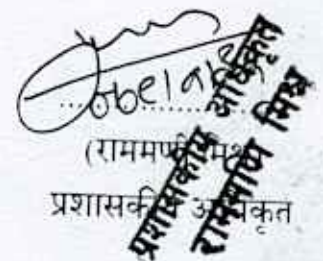 (राममणी मिश्र)
प्रशासकीय अधिकृत
प्रशासकीय अधिकृत
राममणि मिश्र